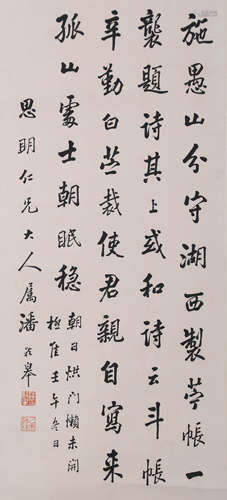 施愚山分守湖西製苧帳一
襲題詩其上或和詩云斗帳
辛勤白苧裁使君親自寫來
孤山處士朝眠穩
朝日烘門懶未開
極隹壬午冬日
思明仁兄大人属潘齡皋